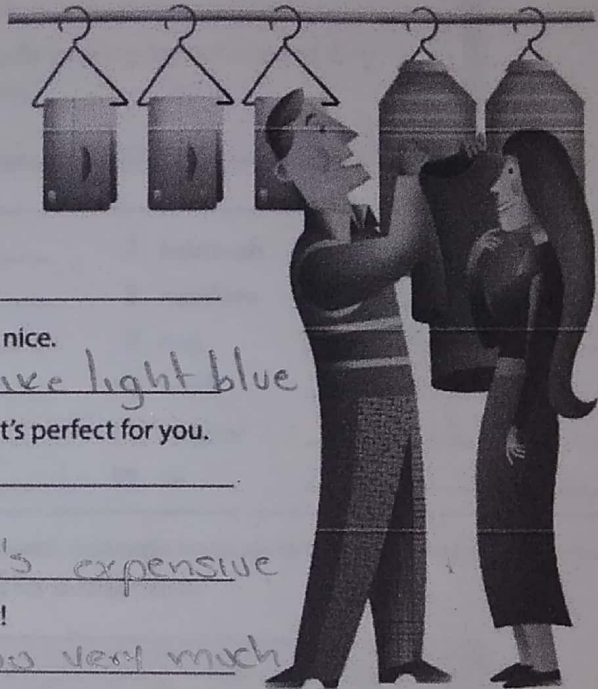 nice.
light blue
t's perfect for you.
's expensive
!
very much